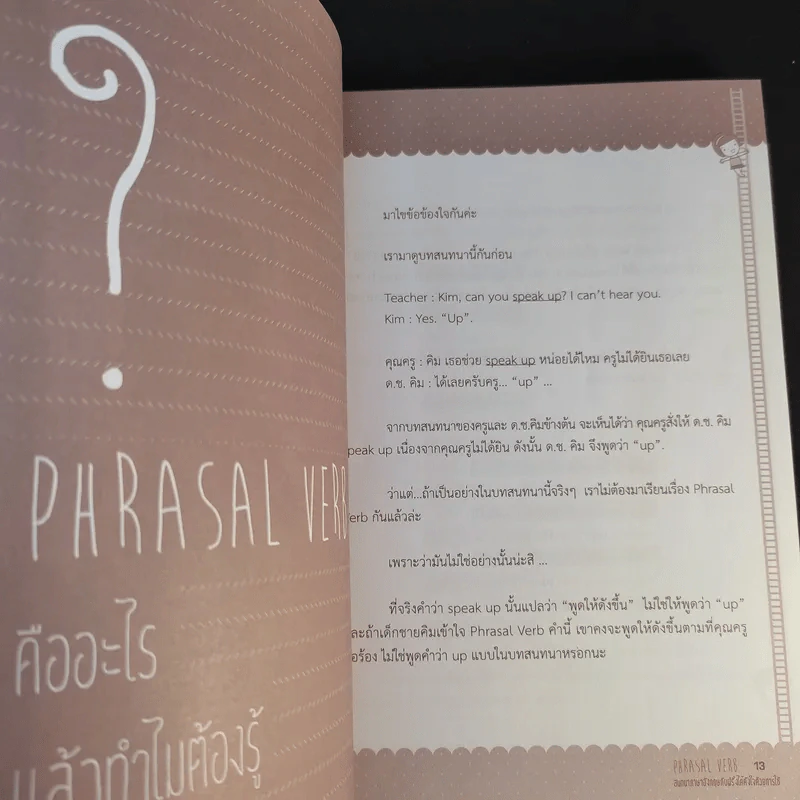 ?
PHRASAL VERB
คืออะไร
แล้วทำไมต้องรู้
มาไขข้อข้องใจกันค่ะ
เรามาดูบทสนทนานี้กันก่อน
Teacher : Kim, can you speak up? I can't hear you.
Kim : Yes. “Up”.
คุณครู : คิม เธอช่วย speak up หน่อยได้ไหม ครูไม่ได้ยินเธอเลย
ด.ช. คิม : ได้เลยครับครู... “up” ...
จากบทสนทนาของครูและ ด.ช.คิมข้างต้น จะเห็นได้ว่า คุณครูสั่งให้ ด.ช. คิม
peak up เนื่องจากคุณครูไม่ได้ยิน ดังนั้น ด.ช. คิม จึงพูดว่า “up”.
ว่าแต่...ถ้าเป็นอย่างในบทสนทนานี้จริงๆ เราไม่ต้องมาเรียนเรื่อง Phrasal
erb กันแล้วล่ะ
เพราะว่ามันไม่ใช่อย่างนั้นน่ะสิ ...
ที่จริงคำว่า speak up นั้นแปลว่า “พูดให้ดังขึ้น” ไม่ใช่ให้พูดว่า “up”
ละถ้าเด็กชายคิมเข้าใจ Phrasal Verb คำนี้ เขาคงจะพูดให้ดังขึ้นตามที่คุณครู
อร้อง ไม่ใช่พูดคำว่า up แบบในบทสนทนาหรอกนะ
PHRASAL VERB 13